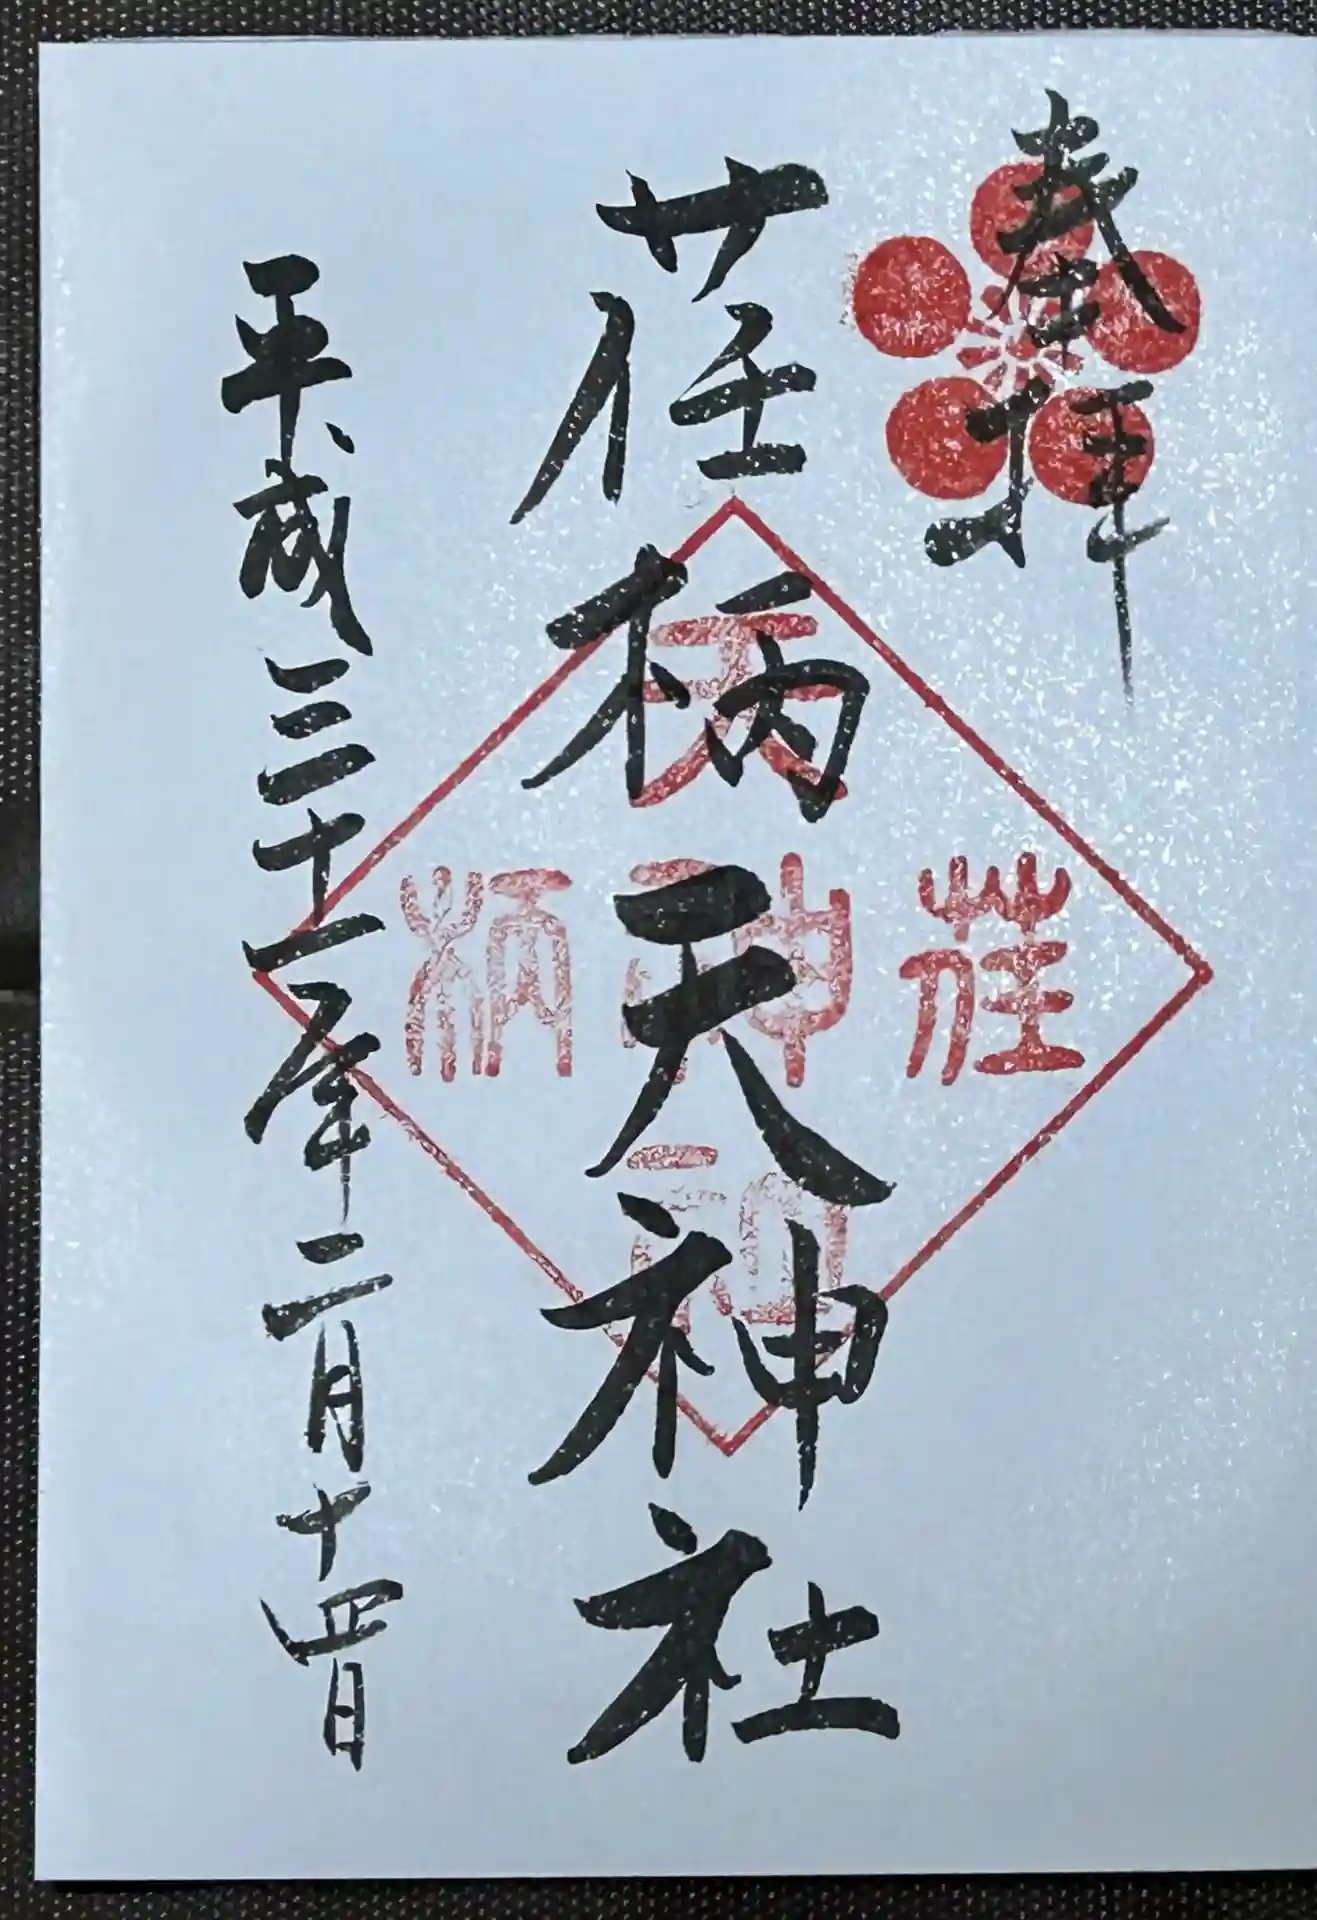 奉拝
荏柄天神社
平成三十一年二月十四日
天
荏神柄